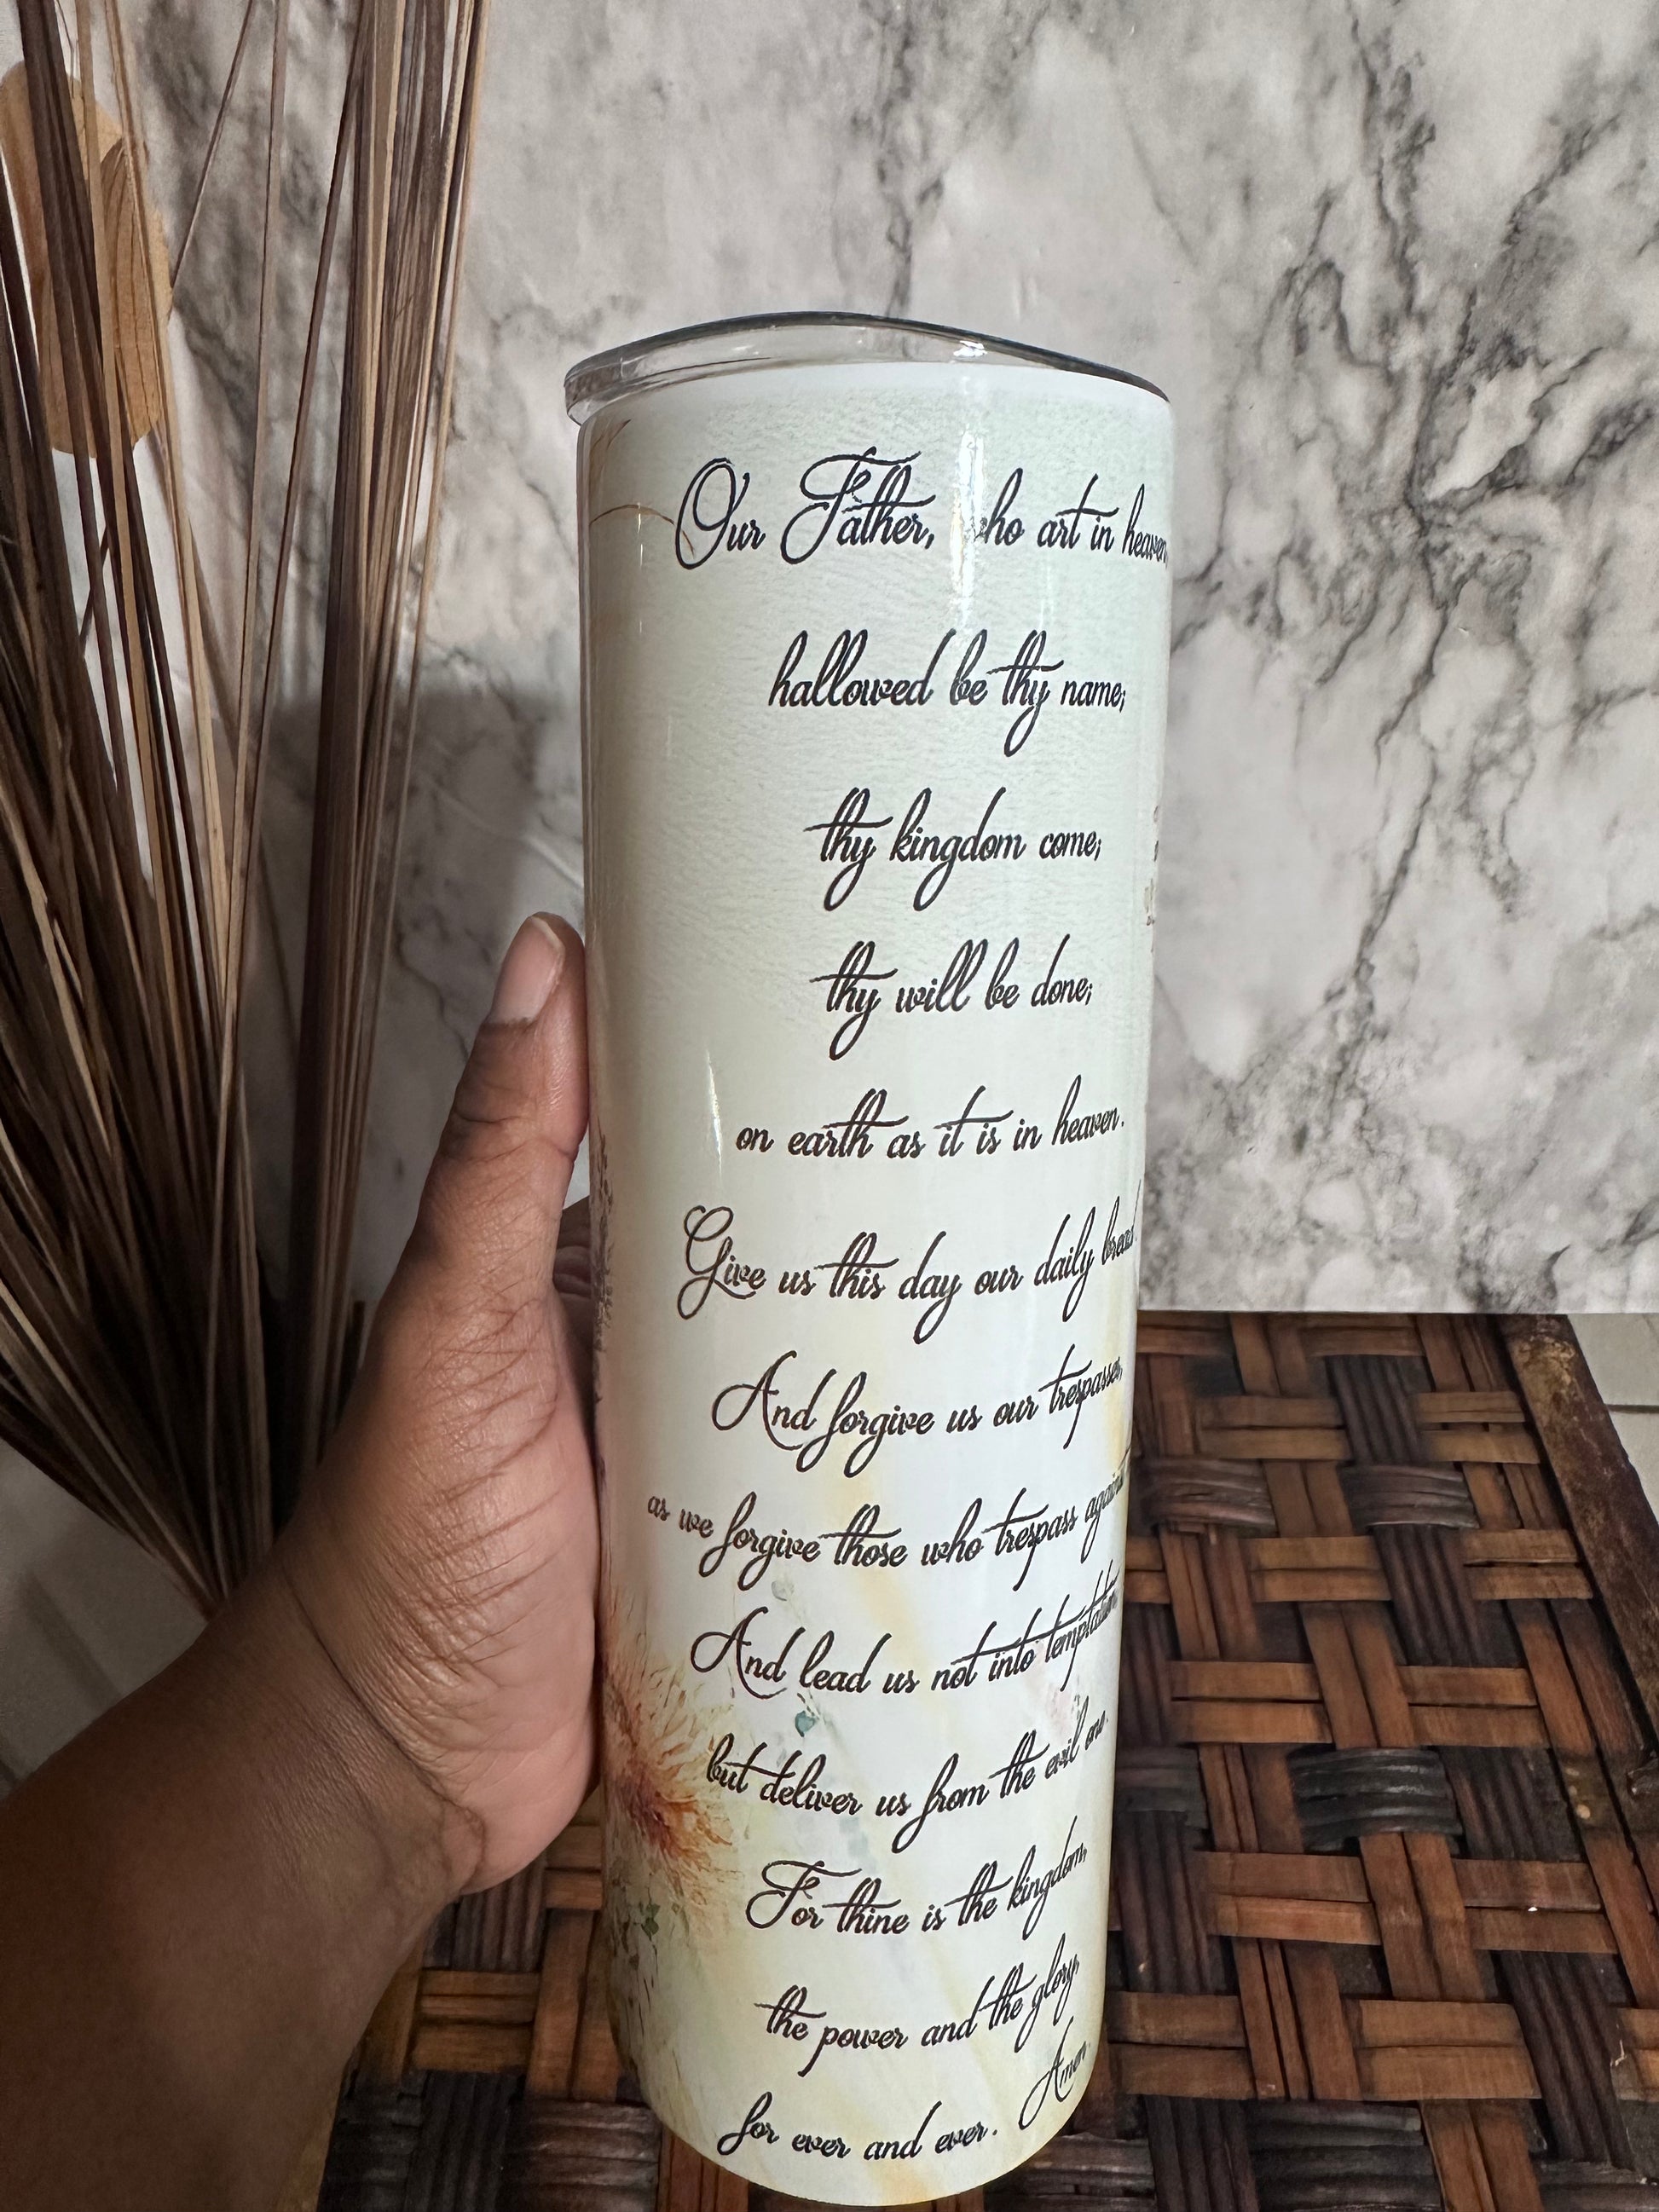 Our Father, who art in heaven,
hallowed be thy name;
thy kingdom come;
thy will be done;
on earth as it is in heaven.
Give us this day our daily bread.
And forgive us our trespasses,
as we forgive those who trespass against
And lead us not into temptation,
but deliver us from the evil one.
For thine is the kingdom,
the power and the glory,
for ever and ever. Amen.